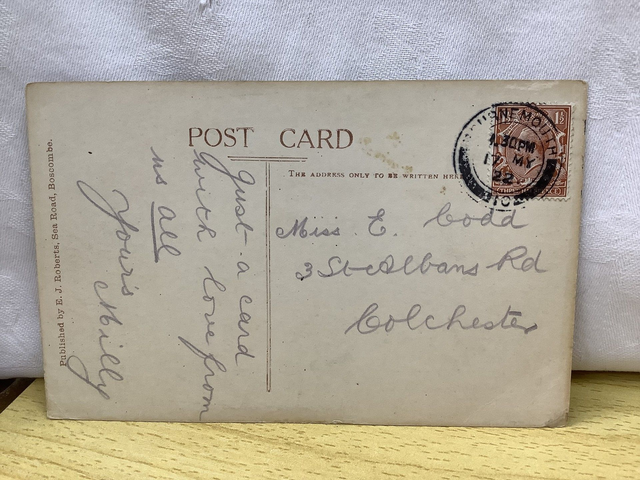 POST CARD
THE ADDRESS ONLY TO BE WRITTEN HERE
BOURNEMOUTH
4.30PM
17 MY
22
1½
Just a card
with love from
us all
Yours Milly
Miss E. Codd
3 St Albans Rd
Colchester
Published by E. J. Roberts, Sea Road, Boscombe.